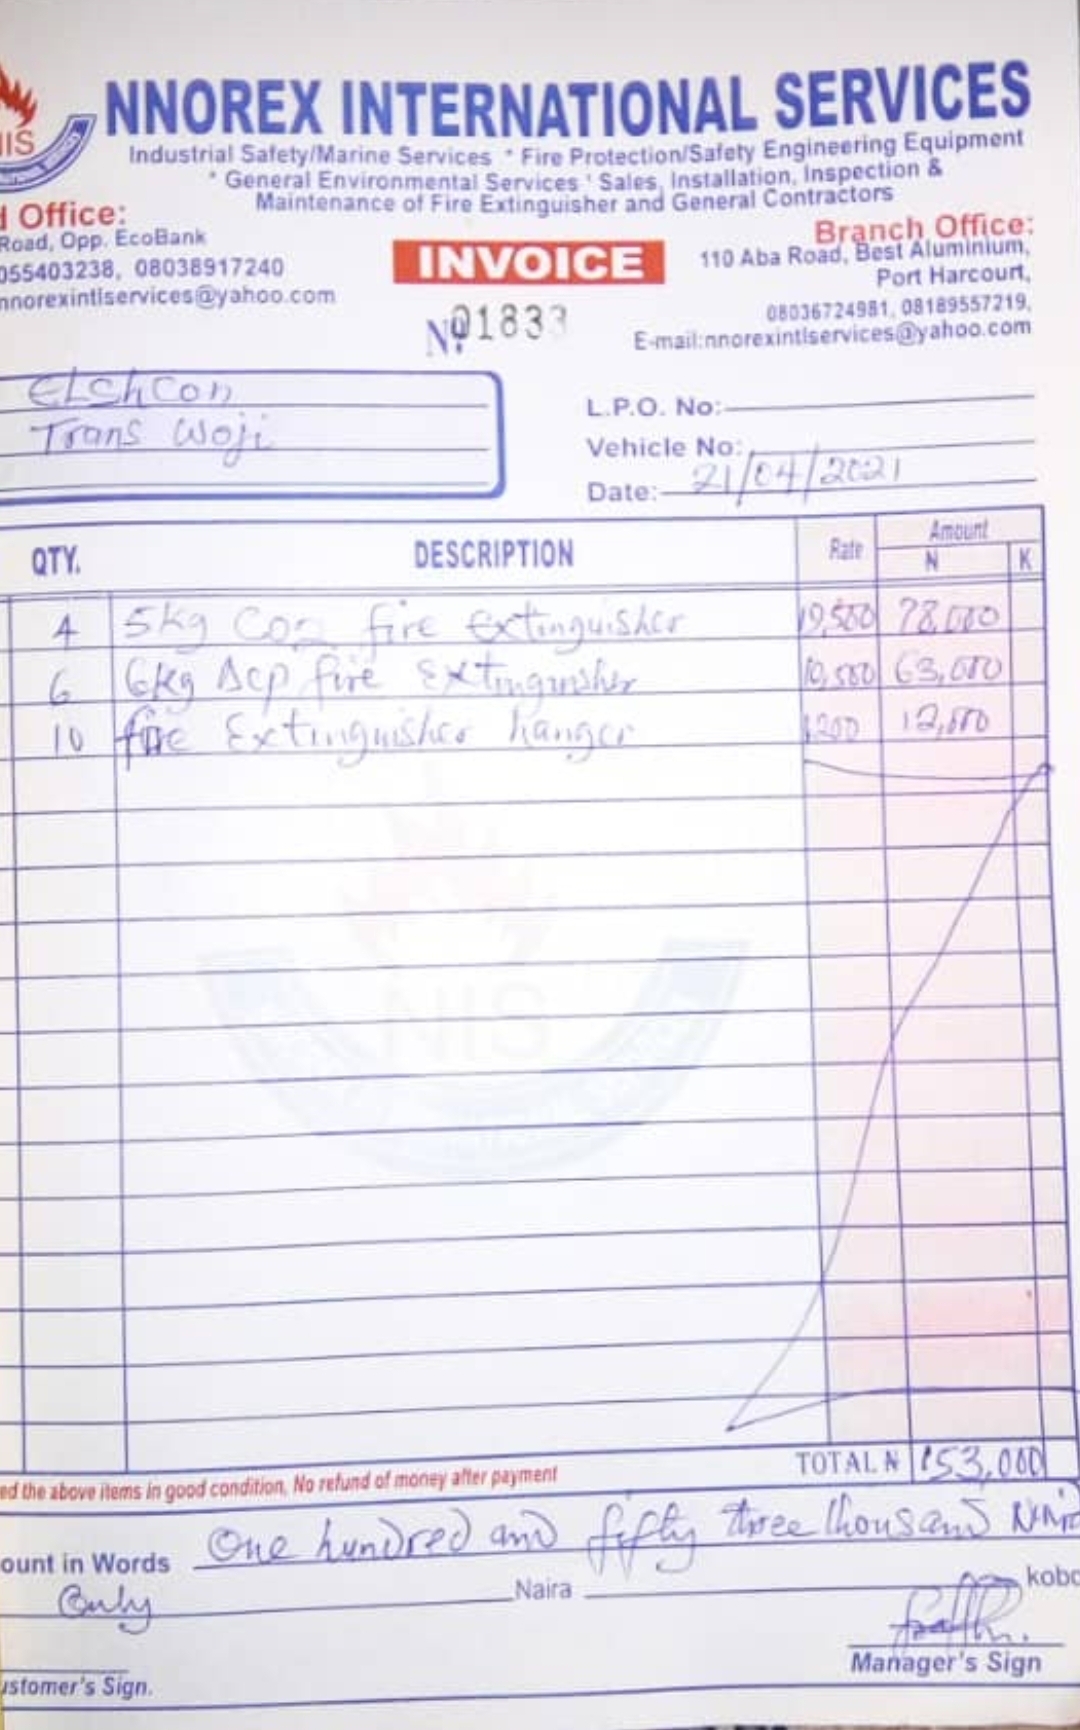 NIS
NNOREX INTERNATIONAL SERVICES
Industrial Safety/Marine Services * Fire Protection/Safety Engineering Equipment
* General Environmental Services ' Sales, Installation, Inspection &
Maintenance of Fire Extinguisher and General Contractors
d Office:
Road, Opp. EcoBank
055403238, 08038917240
nnorexintlservices@yahoo.com
INVOICE
№ 01833
Branch Office:
110 Aba Road, Best Aluminium,
Port Harcourt,
08036724981, 08189557219,
E-mail:nnorexintlservices@yahoo.com
ELShCon
Trans Woji
L.P.O. No:
Vehicle No:
Date: 21/04/2021
QTY. DESCRIPTION Rate Amount
N K
4 5kg Co2 fire Extinguisher 19,500 78,000
6 6kg Dcp fire Extinguisher 10,500 63,000
10 fire Extinguisher hanger 1200 12,000
NIS
TOTAL N 153,000
ed the above items in good condition, No refund of money after payment
ount in Words One hundred and fifty three thousand Naira
Only Naira kobo
Manager's Sign
ustomer's Sign.